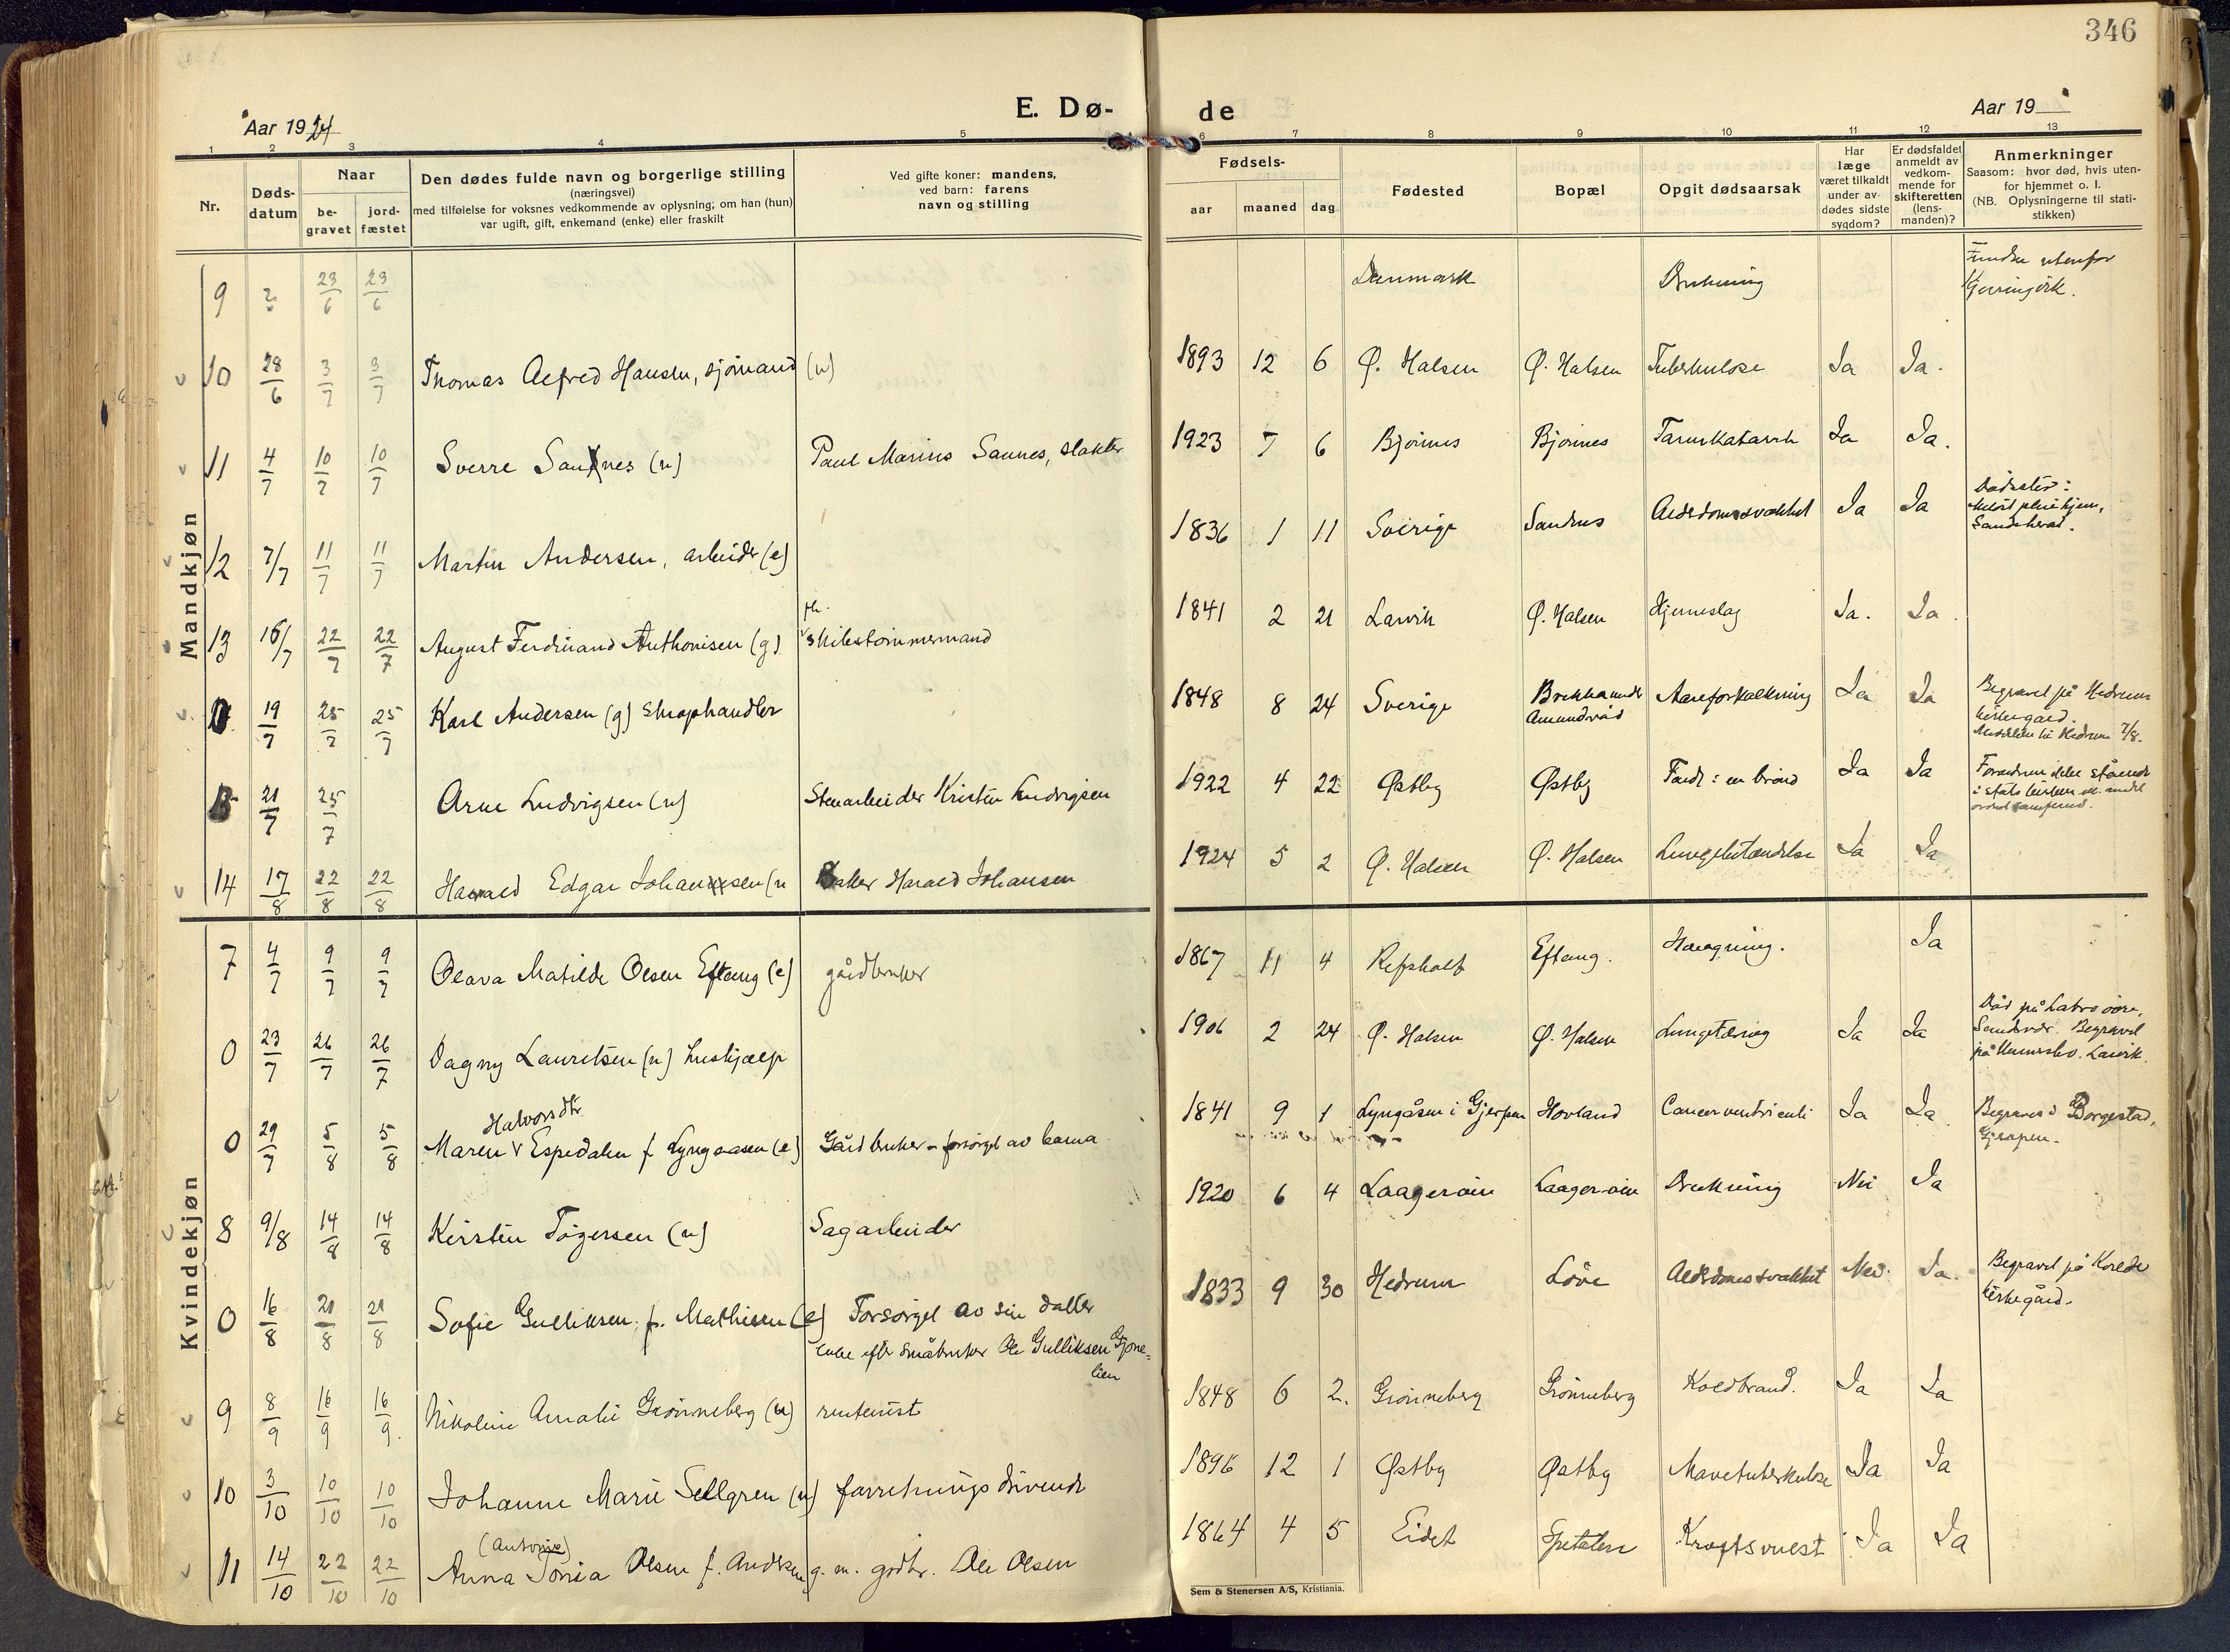 346
E. Dø-
de
Aar 1924
Aar 19
1 2 3 4 5 6 7 8 9 10 11 12 13
Nr.
Døds-
datum
Naar
be-
gravet
jord-
fæstet
Den dødes fulde navn og borgerlige stilling
(næringsvei)
med tilføielse for voksnes vedkommende av oplysning, om han (hun)
var ugift, gift, enkemand (enke) eller fraskilt
Ved gifte koner: mandens,
ved barn: farens
navn og stilling
Fødsels-
aar maaned dag
Fødested
Bopæl
Opgit dødsaarsak
Har
læge
været tilkaldt
under av-
dødes sidste
sygdom?
Er dødsfaldet
anmeldt av
vedkom-
mende for
skifteretten
(lens-
manden)?
Anmerkninger
Saasom: hvor død, hvis uten-
for hjemmet o. l.
(NB. Oplysningerne til stati-
stikken)
Mandkjøn
9 ? 23/6 23/6 Danmark Drukning Funden utenfor
10 28/6 3/7 3/7 Thomas Alfred Hansen, sjømand (u) 1893 12 6 Ø. Halsen Ø. Halsen Tuberkulose Ja Ja.
11 4/7 10/7 10/7 Sverre Sannes (u) Paul Marius Sannes, slakter 1923 7 6 Bjønnes Bjønnes Tarmkatarrh Ja Ja.
12 7/7 11/7 11/7 Martin Andersen, arbeider (e) 1836 1 11 Sverige Sandnes Alderdomssvakhet Ja Ja Dødssted:
pleiehjem,
Sandeherad.
13 16/7 22/7 22/7 August Ferdinand Anthonisen (g) fh. skibstømmermand 1841 2 21 Larvik Ø. Halsen Hjerneslag Ja. Ja.
0 19/7 25/7 25/7 Karl Andersen (g) skraphandler 1848 8 24 Sverige Amundrød Aareforkalkning Ja Ja Begravet på Hedrum
kirkegård.
Meddelt til Hedrum 7/8.
21/7 25/7 Arne Ludvigsen (u) Stenarbeider Kristen Ludvigsen 1922 4 22 Østby Østby Faldt i en brønd Ja Ja Forældrene ikke stående
i statskirken el. andet
14 17/8 22/8 22/8 Harald Edgar Johansen (u Baker Harald Johansen 1924 5 2 Ø. Halsen Ø. Halsen Lungebetændelse Ja Ja
Kvindekjøn
7 4/7 9/7 9/7 Olava Matilde Olsen Eftang (e) gårdbruker 1867 11 4 Refsholt Eftang. Hængning. Ja
0 23/7 26/7 26/7 Dagny Lauritsen (u) hushjælp 1906 2 24 Ø. Halsen Ø. Halsen Lungetæring Ja Ja Død på Labro øvre,
Sandsvær. Begravet
på Larvik.
Halvorsdtr
0 29/7 5/8 5/8 Maren Espedalen f. Lyngaasen (e) Gårdbruker - forsørget av barna. 1841 9 1 Lyngåsen i Gjerpen Hovland Cancer ventriculi Ja Ja Begraves i Borgestad,
Gjerpen.
8 9/8 14/8 14/8 Kirsten Tøgersen (u) Sagarbeider 1920 6 4 Laagerøen Laagerøen Drukning Nei Ja
0 16/8 21/8 21/8 Sofie Gulliksen f. Mathisen (e) Forsørget av sin datter 1833 9 30 Hedrum Løve Alderdomssvakhet Nei. Ja. Begravet på Kvelde
kirkegård.
enke efter småbruker Ole Gulliksen Gjone-
lien
9 8/9 16/9 16/9 Nikoline Amalie Grønneberg (u) rentenist 1848 6 2. Grønneberg Grønneberg Koldbrand. Ja Ja
10 3/10 10/10 10/10 Johanne Marie Sellgren (u) forretningsdrivende 1896 12 1 Østby Østby Mavetuberkulose Ja Ja
(Antonie)
11 14/10 22/10 22/10 Anna Tonia Olsen f. Andersen g. m. gbr. Ole Olsen 1864 4 5 Eidet Spetalen Kræftsvulst Ja Ja
Sem & Stenersen A/S, Kristiania.